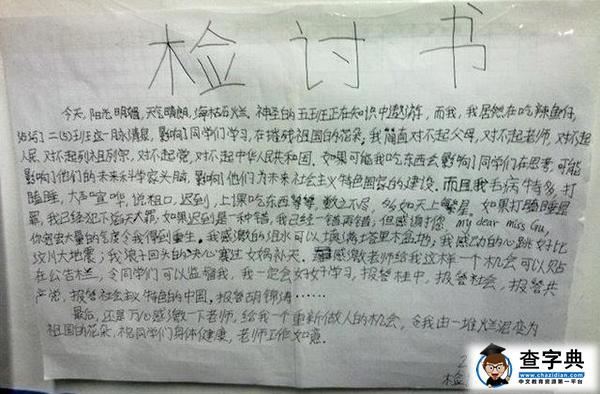 检讨书
今天,阳光明媚,天气晴朗,海枯石烂。神圣的五班正在知识中遨游,而我,我居然在吃辣鱼仔,
二(5)班这一脉清泉,影响同学们学习,在摧残祖国的花朵。我简直对不起父母,对不起老师,对不起
人民,对不起列祖列宗,对不起党,对不起中华人民共和国。如果可能我吃东西会影响同学在思考,可能
影响他们的未来科学家头脑,影响他们为未来社会主义特色国家的建设。而且我毛病特多,打
瞌睡,大声喧哗,说粗口,迟到,上课吃东西等等,数之不尽,多如天上繁星。如果打瞌睡是
罪,我已经犯下滔天大罪,如果迟到是一种错,我已经一错再错;但感谢您,my dear miss Gu,
你宽宏大量的气度令我得到重生。我感激的泪水可以填满塔里木盆地,我感动的心跳好比
汶川大地震;我浪子回头的决心赛过女娲补天。感激老师给我这样一个机会可以贴
在公告栏,令同学们可以监督我,我一定会好好学习,报答社会,报答共
产党,报答社会主义特色的中国,报答胡锦涛……
最后,还是万分感激一下老师,给我一个重新做人的机会,令我由一堆烂泥变为
祖国的花朵,祝同学们身体健康,老师工作如意。
检
查字典
www.chazidian.com
中文教育资源第一平台